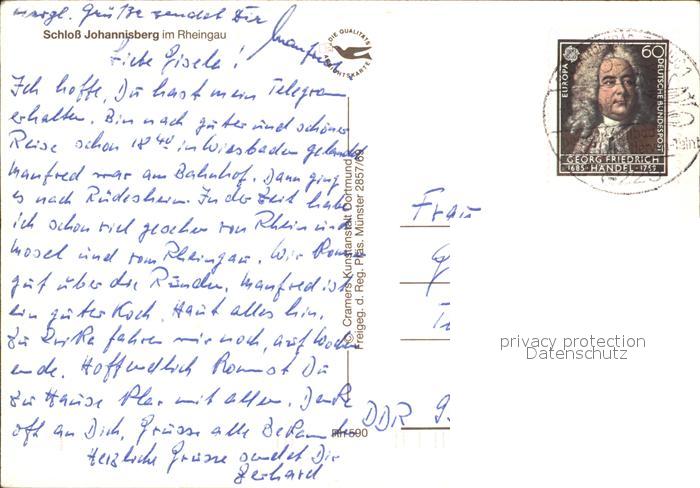 herzl. Grüße sendet Dir
Manfred
Schloß Johannisberg im Rheingau
DIE QUALITÄTS
ANSICHTSKARTE
Liebe Gisela!
Ich hoffe, Du hast mein Telegram
erhalten. Bin nach guter und schöner
Reise schon 18 40 in Wiesbaden gelandet
Manfred war am Bahnhof. Dann ging
es nach Rüdesheim. In der Zeit habe
ich schon viel gesehen von Rhein und
Mosel und vom Rheingau. Wir komm
gut über die Runden. Manfred ist
ein guter Koch. Haut alles hin.
Zu Erika fahren wir noch, auf Wochen
ende. Hoffendlich kommst Du
zu Hause klar mit allem. Denke
oft an Dich. Grüsse alle Bekann
Herzliche Grüsse sendet Dir
Gerhard
© Cramers Kunstanstalt Dortmund
Freigeg. d. Reg. Präs. Münster 2857/69
RH 590
EUROPA
60
DEUTSCHE BUNDESPOST
GEORG FRIEDRICH
1685 · HÄNDEL · 1759
Frau
DDR 9.
privacy protection
Datenschutz